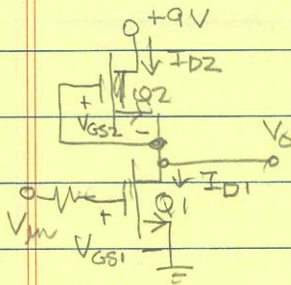 +9V
I_D2
Q2
+
V_GS2 -
V_o
I_D1
Q1
V_in
+
V_GS1 -